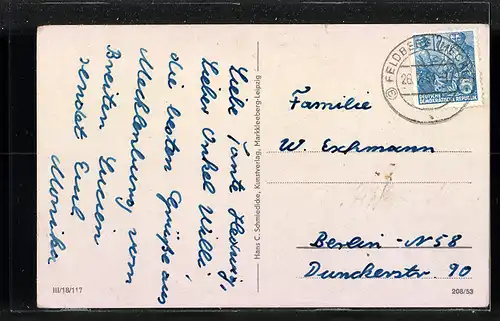 Liebe Tante Hedwig,
Lieber Onkel Willi
die besten Grüße aus
Mecklenburg, vom
Breiten Luzien
sendet Euch
Monika
III/18/117
Hans C. Schmiedicke, Kunstverlag, Markkleeberg-Leipzig
FELDBERG (MECKL)
26.
DEUTSCHE
DEMOKRATISCHE REPUBLIK
5
Familie
W. Eschmann
Berlin-N58
Dunckerstr. 90
208/53